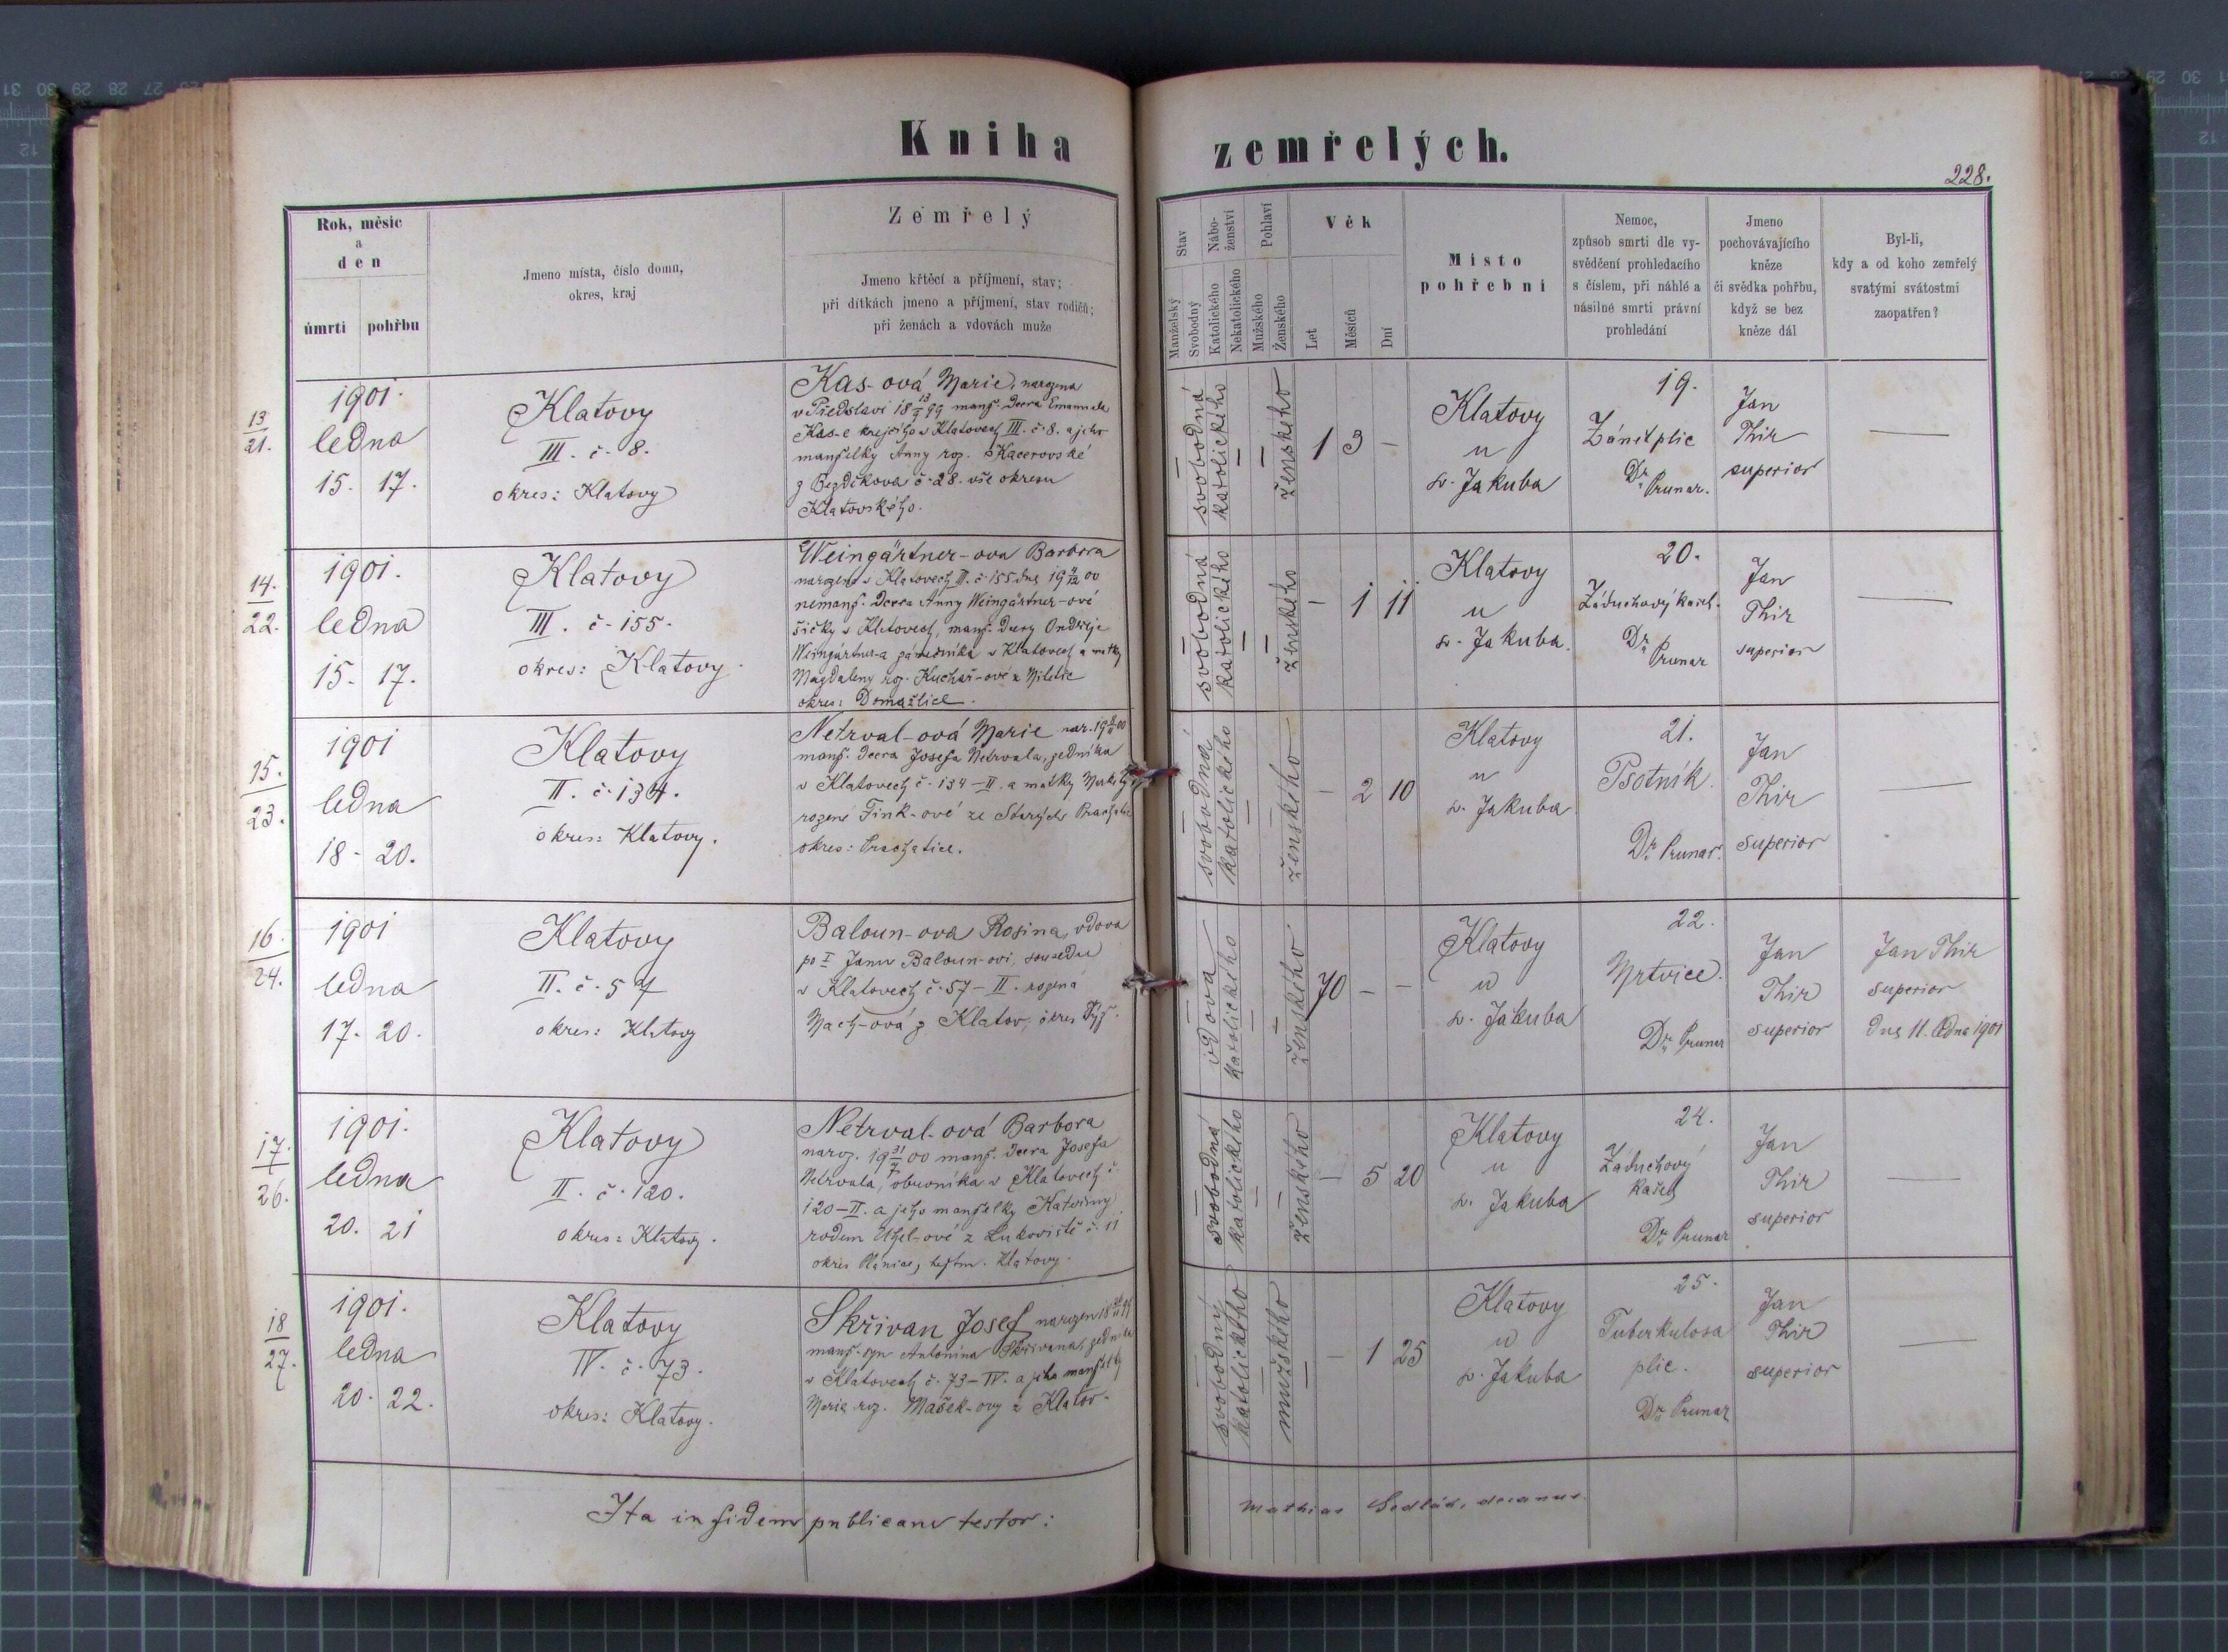 Kniha zemřelých.
228.
Rok, měsíc
a
den
úmrtí pohřbu
Jmeno místa, číslo domu,
okres, kraj
Zemřelý
Jmeno křtěcí a příjmení, stav;
při dítkách jmeno a příjmení, stav rodičů;
při ženách a vdovách muže
Stav
Manželský
Svobodný
Nábo-
ženství
Katolického
Nekatolického
Pohlaví
Mužského
Ženského
Věk
Let
Měsíců
Dní
Místo
pohřební
Nemoc,
způsob smrti dle vy-
svědčení prohledacího
s číslem, při náhlé a
násilné smrti právní
prohledání
Jmeno
pochovávajícího
kněze
či svědka pohřbu,
když se bez
kněze dál
Byl-li,
kdy a od koho zemřelý
svatými svátostmi
zaopatřen?
13
21.
1901.
ledna
15. 17.
Klatovy
III. č. 8.
okres: Klatovy
Kas-ová Marie, narozena
v Předslavi 18 13/9 99 manž. dcera Emanuela
Kas-e krejčího v Klatovech III. č. 8. a jeho
manželky Anny roz. Kacerovské
z Bezděkova č. 28. vše okresu
Klatovského.
svobodná
katolického
ženského
1 3 -
Klatovy
u
sv. Jakuba
19.
Zánět plic
Dr. Prunar.
Jan
Thir
superior
—
14.
22.
1901.
ledna
15. 17.
Klatovy
III. č. 155.
okres: Klatovy.
Weingärtner-ova Barbora
narozena v Klatovech III. č. 155 dne 19 4/12 00
nemanž. dcera Anny Weingärtner-ové
šičky v Klatovech, manž. dcery Ondřeje
Weingärtner-a v Klatovech a matky
Magdaleny roz. Kuchař-ové z Miletic
okres: Domažlice.
svobodná
katolického
ženského
- 1 11
Klatovy
u
sv. Jakuba.
20.
Záduchový kašel.
Dr. Prunar
Jan
Thir
superior
—
15.
23.
1901
ledna
18 - 20.
Klatovy
II. č. 134.
okres: Klatovy.
Netrval-ová Marie nar. 19 8/11 00
manž. dcera Josefa Netrvala, zedníka
v Klatovech č. 134-II. a matky Markéty
rozené Fink-ové ze Starých Prachatic
okres: Prachatice.
svobodná
katolického
ženského
- 2 10
Klatovy
u
sv. Jakuba
21.
Psotník.
Dr. Prunar.
Jan
Thir
superior
—
16.
24.
1901
ledna
17. 20.
Klatovy
II. č. 57
okres: Klatovy
Baloun-ová Rosina, vdova
po † Janu Baloun-ovi, sousedu
v Klatovech č. 57-II. rozená
Mach-ová z Klatov, okres týž.
vdova
katolického
ženského
70 - -
Klatovy
u
sv. Jakuba
22.
Mrtvice.
Dr. Prunar
Jan
Thir
superior
Jan Thir
superior
dne 11. ledna 1901
17.
26.
1901.
ledna
20. 21
Klatovy
II. č. 120.
okres: Klatovy.
Netrval-ová Barbora
naroz. 19 31/7 00 manž. dcera Josefa
Netrvala, obuvníka v Klatovech č.
120-II. a jeho manželky Kateřiny
rodem Uhel-ové z Lukoviště č. 11
okres Plánice, hejtm. Klatovy.
svobodná
katolického
ženského
- 5 20
Klatovy
u
sv. Jakuba
24.
Záduchový
kašel
Dr. Prunar
Jan
Thir
superior
—
18
27.
1901.
ledna
20. 22.
Klatovy
IV. č. 73.
okres: Klatovy.
Skřivan Josef narozen
manž. syn Antonína Skřivana, zedníka
v Klatovech č. 73-IV. a jeho manželky
Marie roz. Mašek-ovy z Klatov.
svobodný
katolického
mužského
- 1 25
Klatovy
u
sv. Jakuba
25.
Tuberkulosa
plic.
Dr. Prunar
Jan
Thir
superior
—
Ita in fidem publicam testor: Mathias Sedlák, decanus.